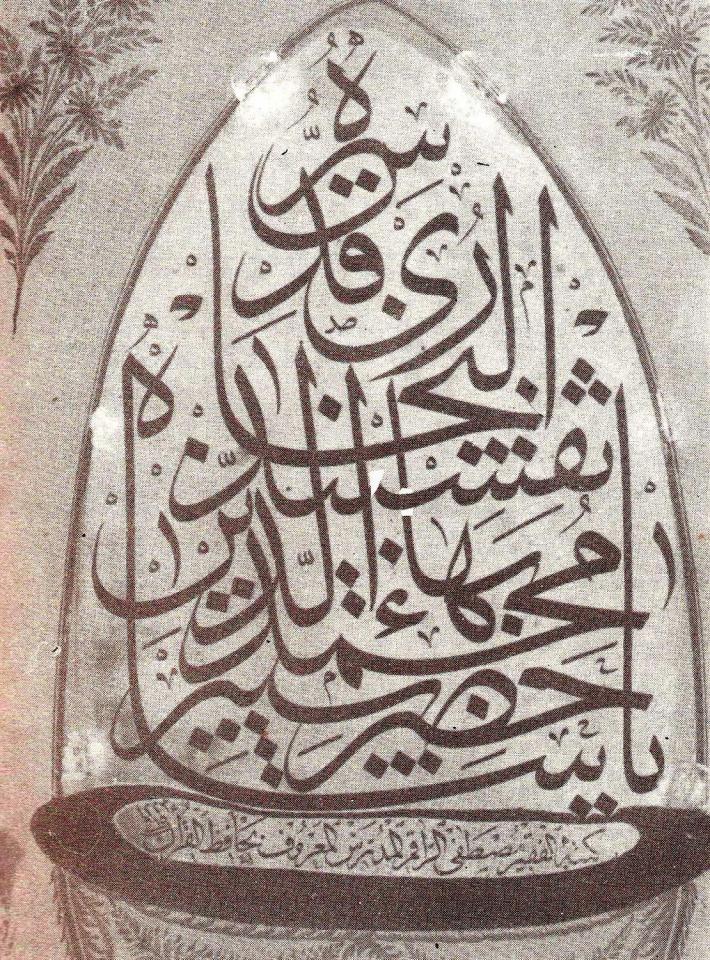 يا حضرت پير
محمد بهاء الدين
نقشبند
البخاري
قدس
سره
كتبه الفقير مصطفى الراقم المدرس المعروف بحافظ القرآن